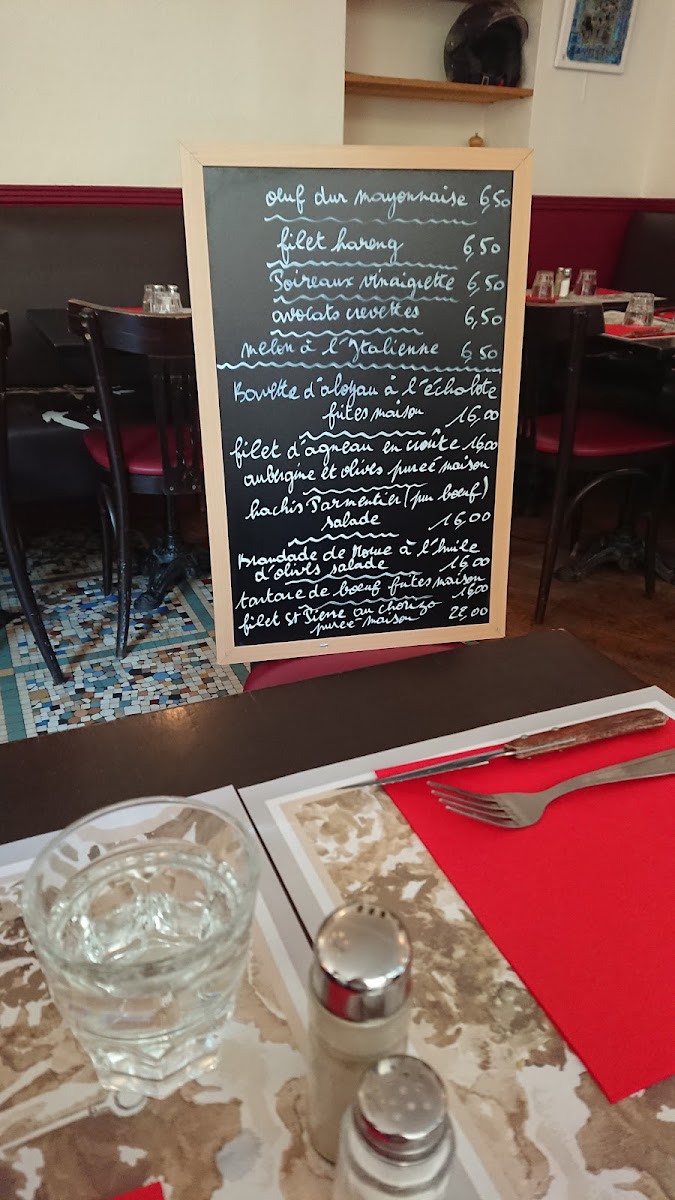 oeuf dur mayonnaise 6,50
filet hareng 6,50
Poireaux vinaigrette 6,50
avocats crevettes 6,50
melon à l'Italienne 6,50
Bavette d'aloyau à l'échalote
frites maison 16,00
filet d'agneau en croûte 16,00
aubergine et olives purée maison
hachis Parmentier (pur boeuf)
salade 16,00
Brandade de Morue à l'huile
d'olives salade 16,00
tartare de boeuf frites maison
16,00
filet St Pierre au chorizo
purée maison 22,00